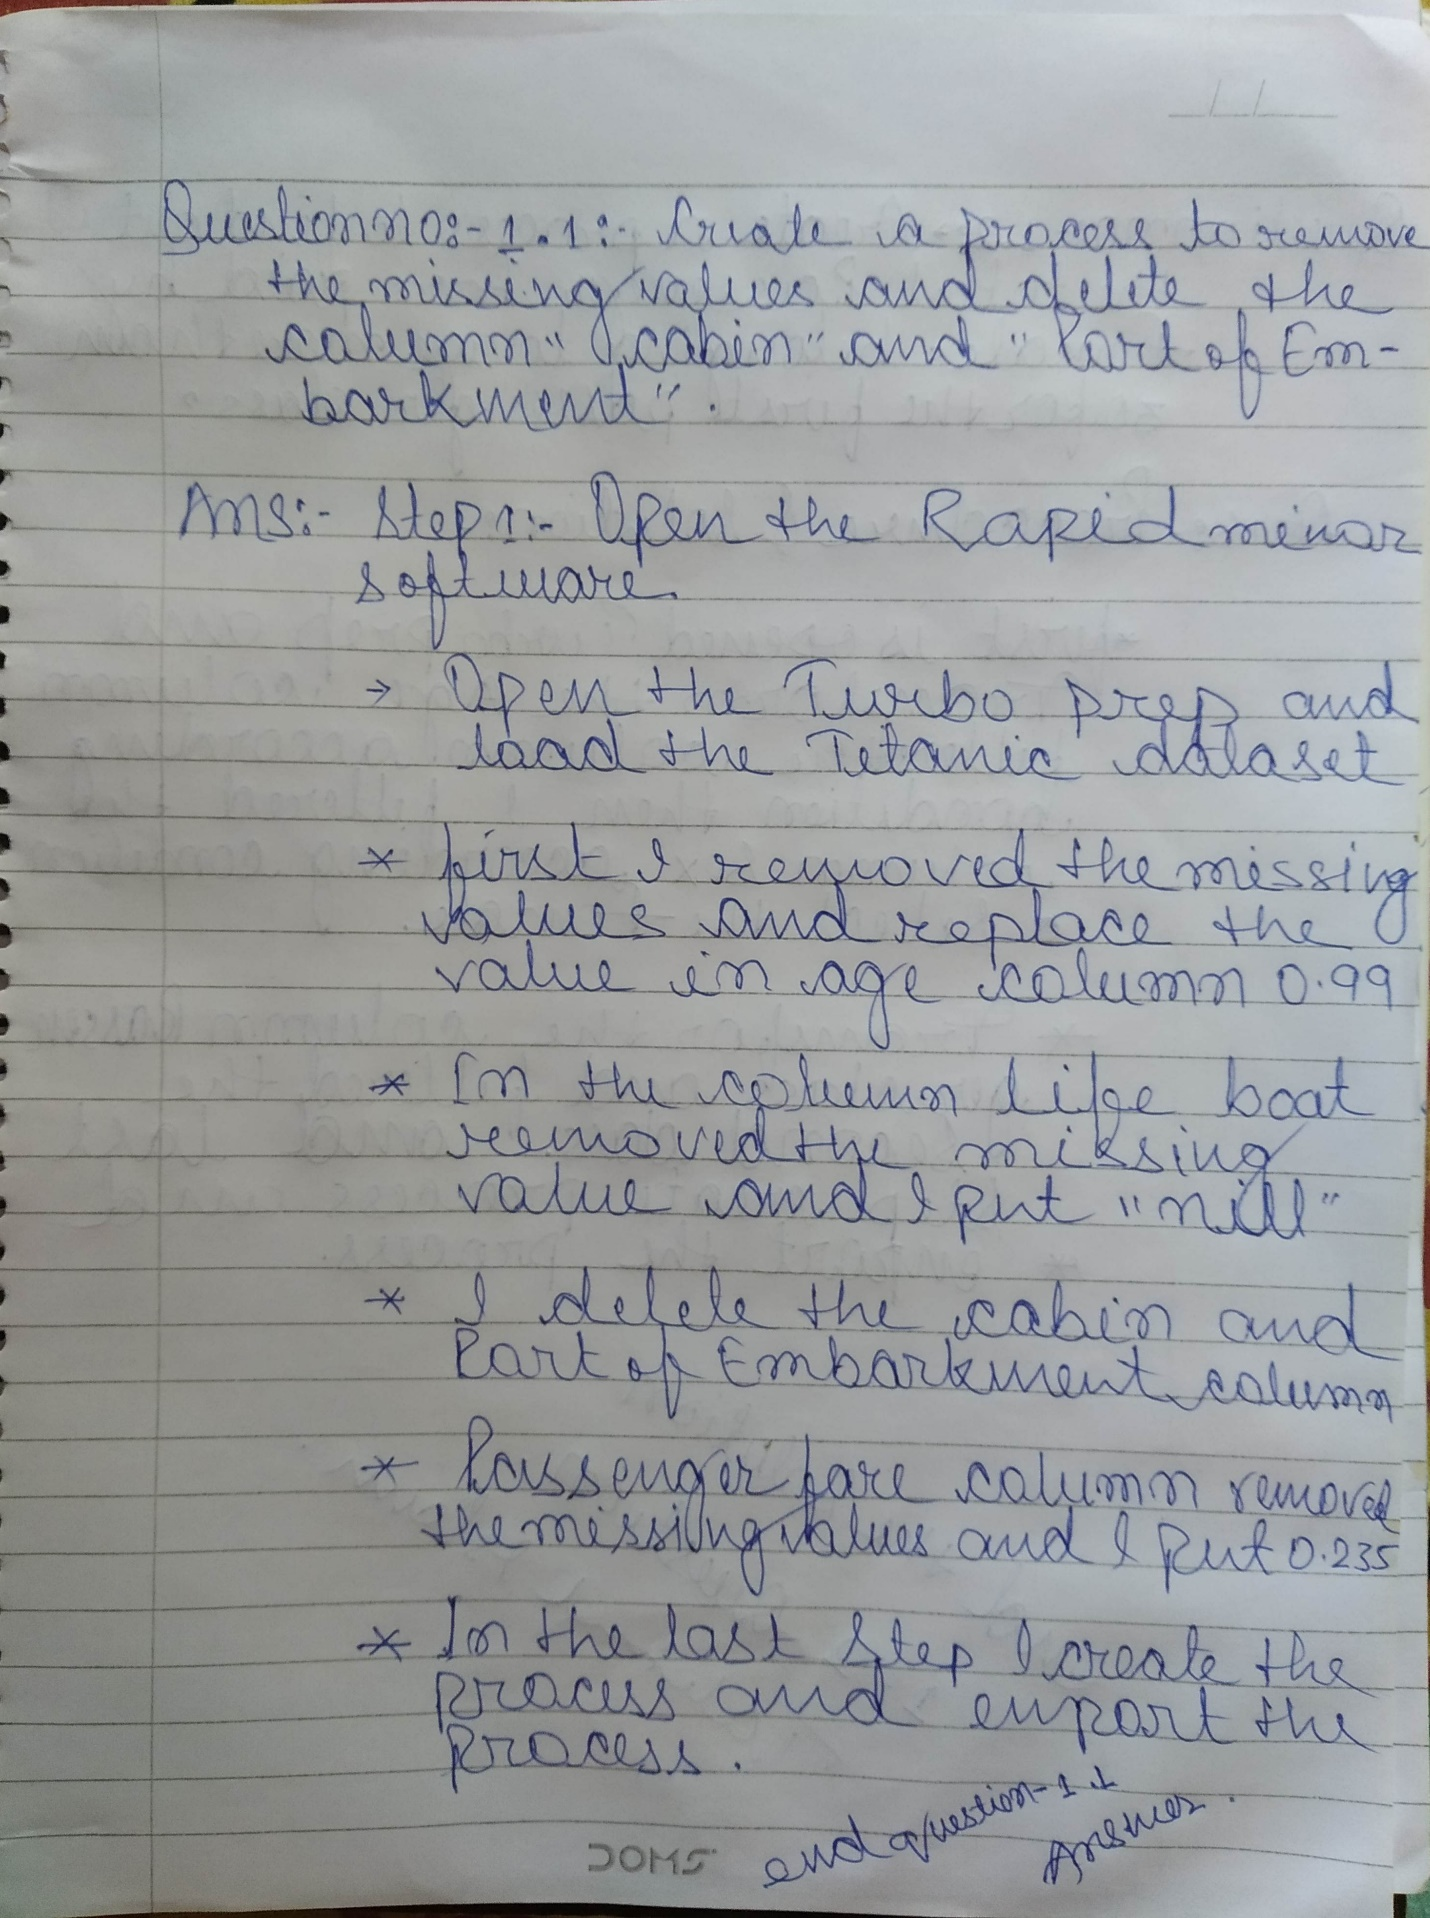 Question no:- 1.1:- Create a process to remove
the missing values and delete the
column " cabin" and "Port of Em-
barkment".
Ans:- Step 1:- Open the Rapid minor
software.
→ Open the Turbo prep and
load the Titanic dataset
* first I removed the missing
values and replace the
value in age column 0.99
* In the column life boat
removed the missing
value and I put "nill"
* I delete the cabin and
Port of Embarkment column
* Passenger fare column removed
the missing values and I put 0.235
* In the last step I create the
process and export the
process.
end question-1.1
Answer.
DOMS